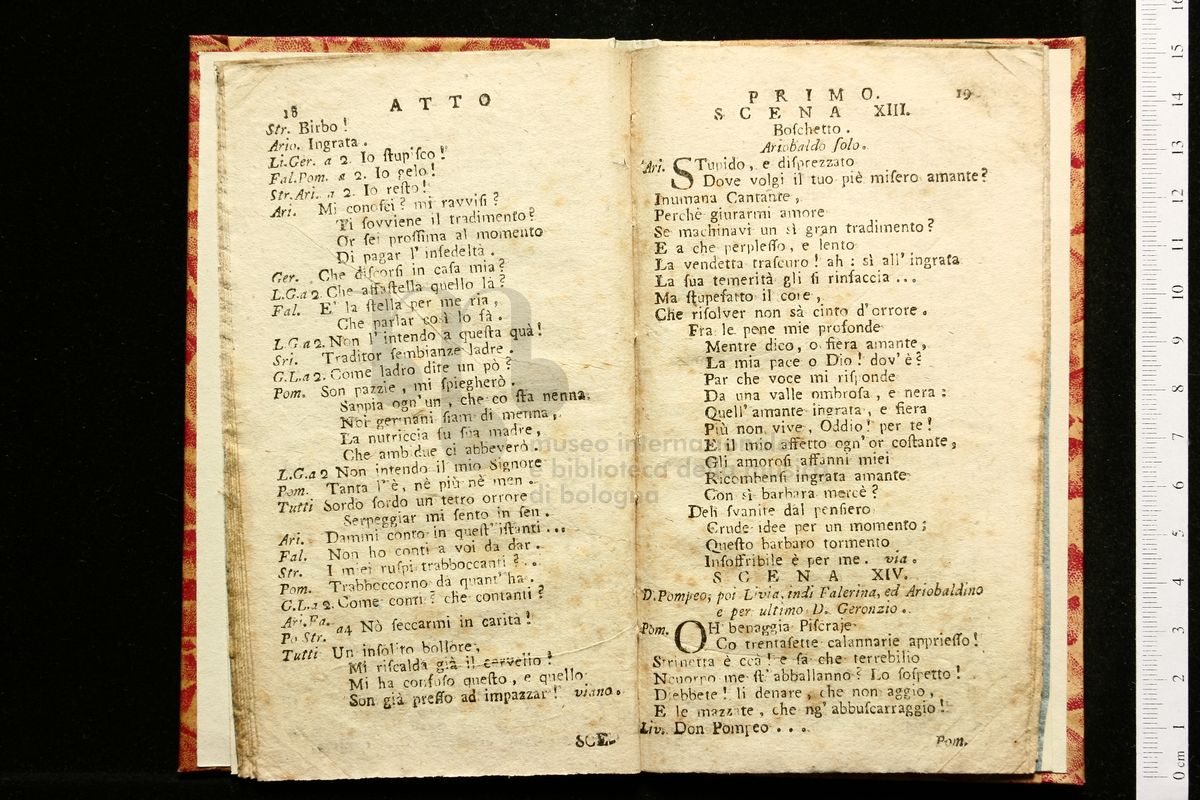 18 ATTO
Str. Birbo !
Ario. Ingrata .
Li.Ger. a 2. Io stupisco !
Fal.Pom. a 2. Io gelo !
Str.Ari. a 2. Io resto !
Ari. Mi conosci ? mi ravvisi ?
Ti sovviene il tradimento ?
Or sei prossima al momento
Di pagar l' infedeltà .
Ger. Che discorsi in casa mia ?
L.G.a 2. Che affastella quello là ?
Fal. E' la stella per me ria,
Che parlar così lo fà .
L.G.a 2. Non l' intendo a questa quà !
Sri. Traditor sembianze ladre .
G.L.a 2. Come ladro dite un pò ?
Pom. Son pazzie , mi spiegherò .
Sappia ogn' un , che co sta nenna
Noi germani siam di menna ,
La nutriccia fu sua madre ,
Che amb due ci abbeverò .
L.G.a 2 Non intendo il mio Signore
Pom. Tanta l' è, nè più nè men .
Tutti Sordo sordo un tetro orrore
Serpeggiar mi sento in sen .
Ari. Dammi conto in quest' istanti ...
Fal. Non ho conti a voi da dar .
Str. I miei ruspi traboccanti ? ..
Pom. Trabboccorno da quant' ha .
G.L.a 2. Come conti ? che contanti ?
Ari.Fa.
Po Str. a4 Nò seccarmi in carità !
Tutti Un insolito bollore,
Mi riscalda già il cervello !
Mi ha confuso questo , e quello
Son già presso ad impazzar ! viano.
SCE-
PRIMO. 19
SCENA XIII.
Boschetto .
Ariobaldo solo.
Ari. STupido, e disprezzato
Dove volgi il tuo piè misero amante ?
Inumana Cantante ,
Perchè giurarmi amore
Se machinavi un sì gran tradimento ?
E a che perplesso , e lento
La vendetta trascuro ! ah : sì all' ingrata
La sua temerità gli si rinfaccia ...
Ma stupefatto il core ,
Che risolver non sà cinto d'orrore .
Fra le pene mie profonde
Mentre dico, o fiera amante ,
La mia pace o Dio ! dov' è ?
Par che voce mi risponde
Da una valle ombrosa , e nera :
Quell' amante ingrata , e fiera
Più non vive , Oddio ! per te !
E il mio affetto ogn' or costante ,
Gli amorosi affanni miei
Ricombensi ingrata amante
Con sì barbara mercè ?
Deh svanite dal pensiero
Crude idee per un momento ;
Questo barbaro tormento
Insoffribile è per me . via .
SCENA XIV.
D.Pompeo, poi Livia, indi Falerina, ed Ariobaldino
e per ultimo D. Geronzio .
Pom. OH benaggia Piscraje
Co trentasette calannarie appriesso !
Strinetta è ccà ! e sa che terrebilio
Neuorno me st' abballanno ? Lo sospetto !
Diebbete ! li denare , che non aggio ,
E le mazzate , che ng' abbuscarraggio !
Liv. Don Pompeo ...
Pom.
museo internazionale
e biblioteca della musica
di bologna
16
15
14
13
12
11
10
9
8
7
6
5
4
3
2
1
0 cm